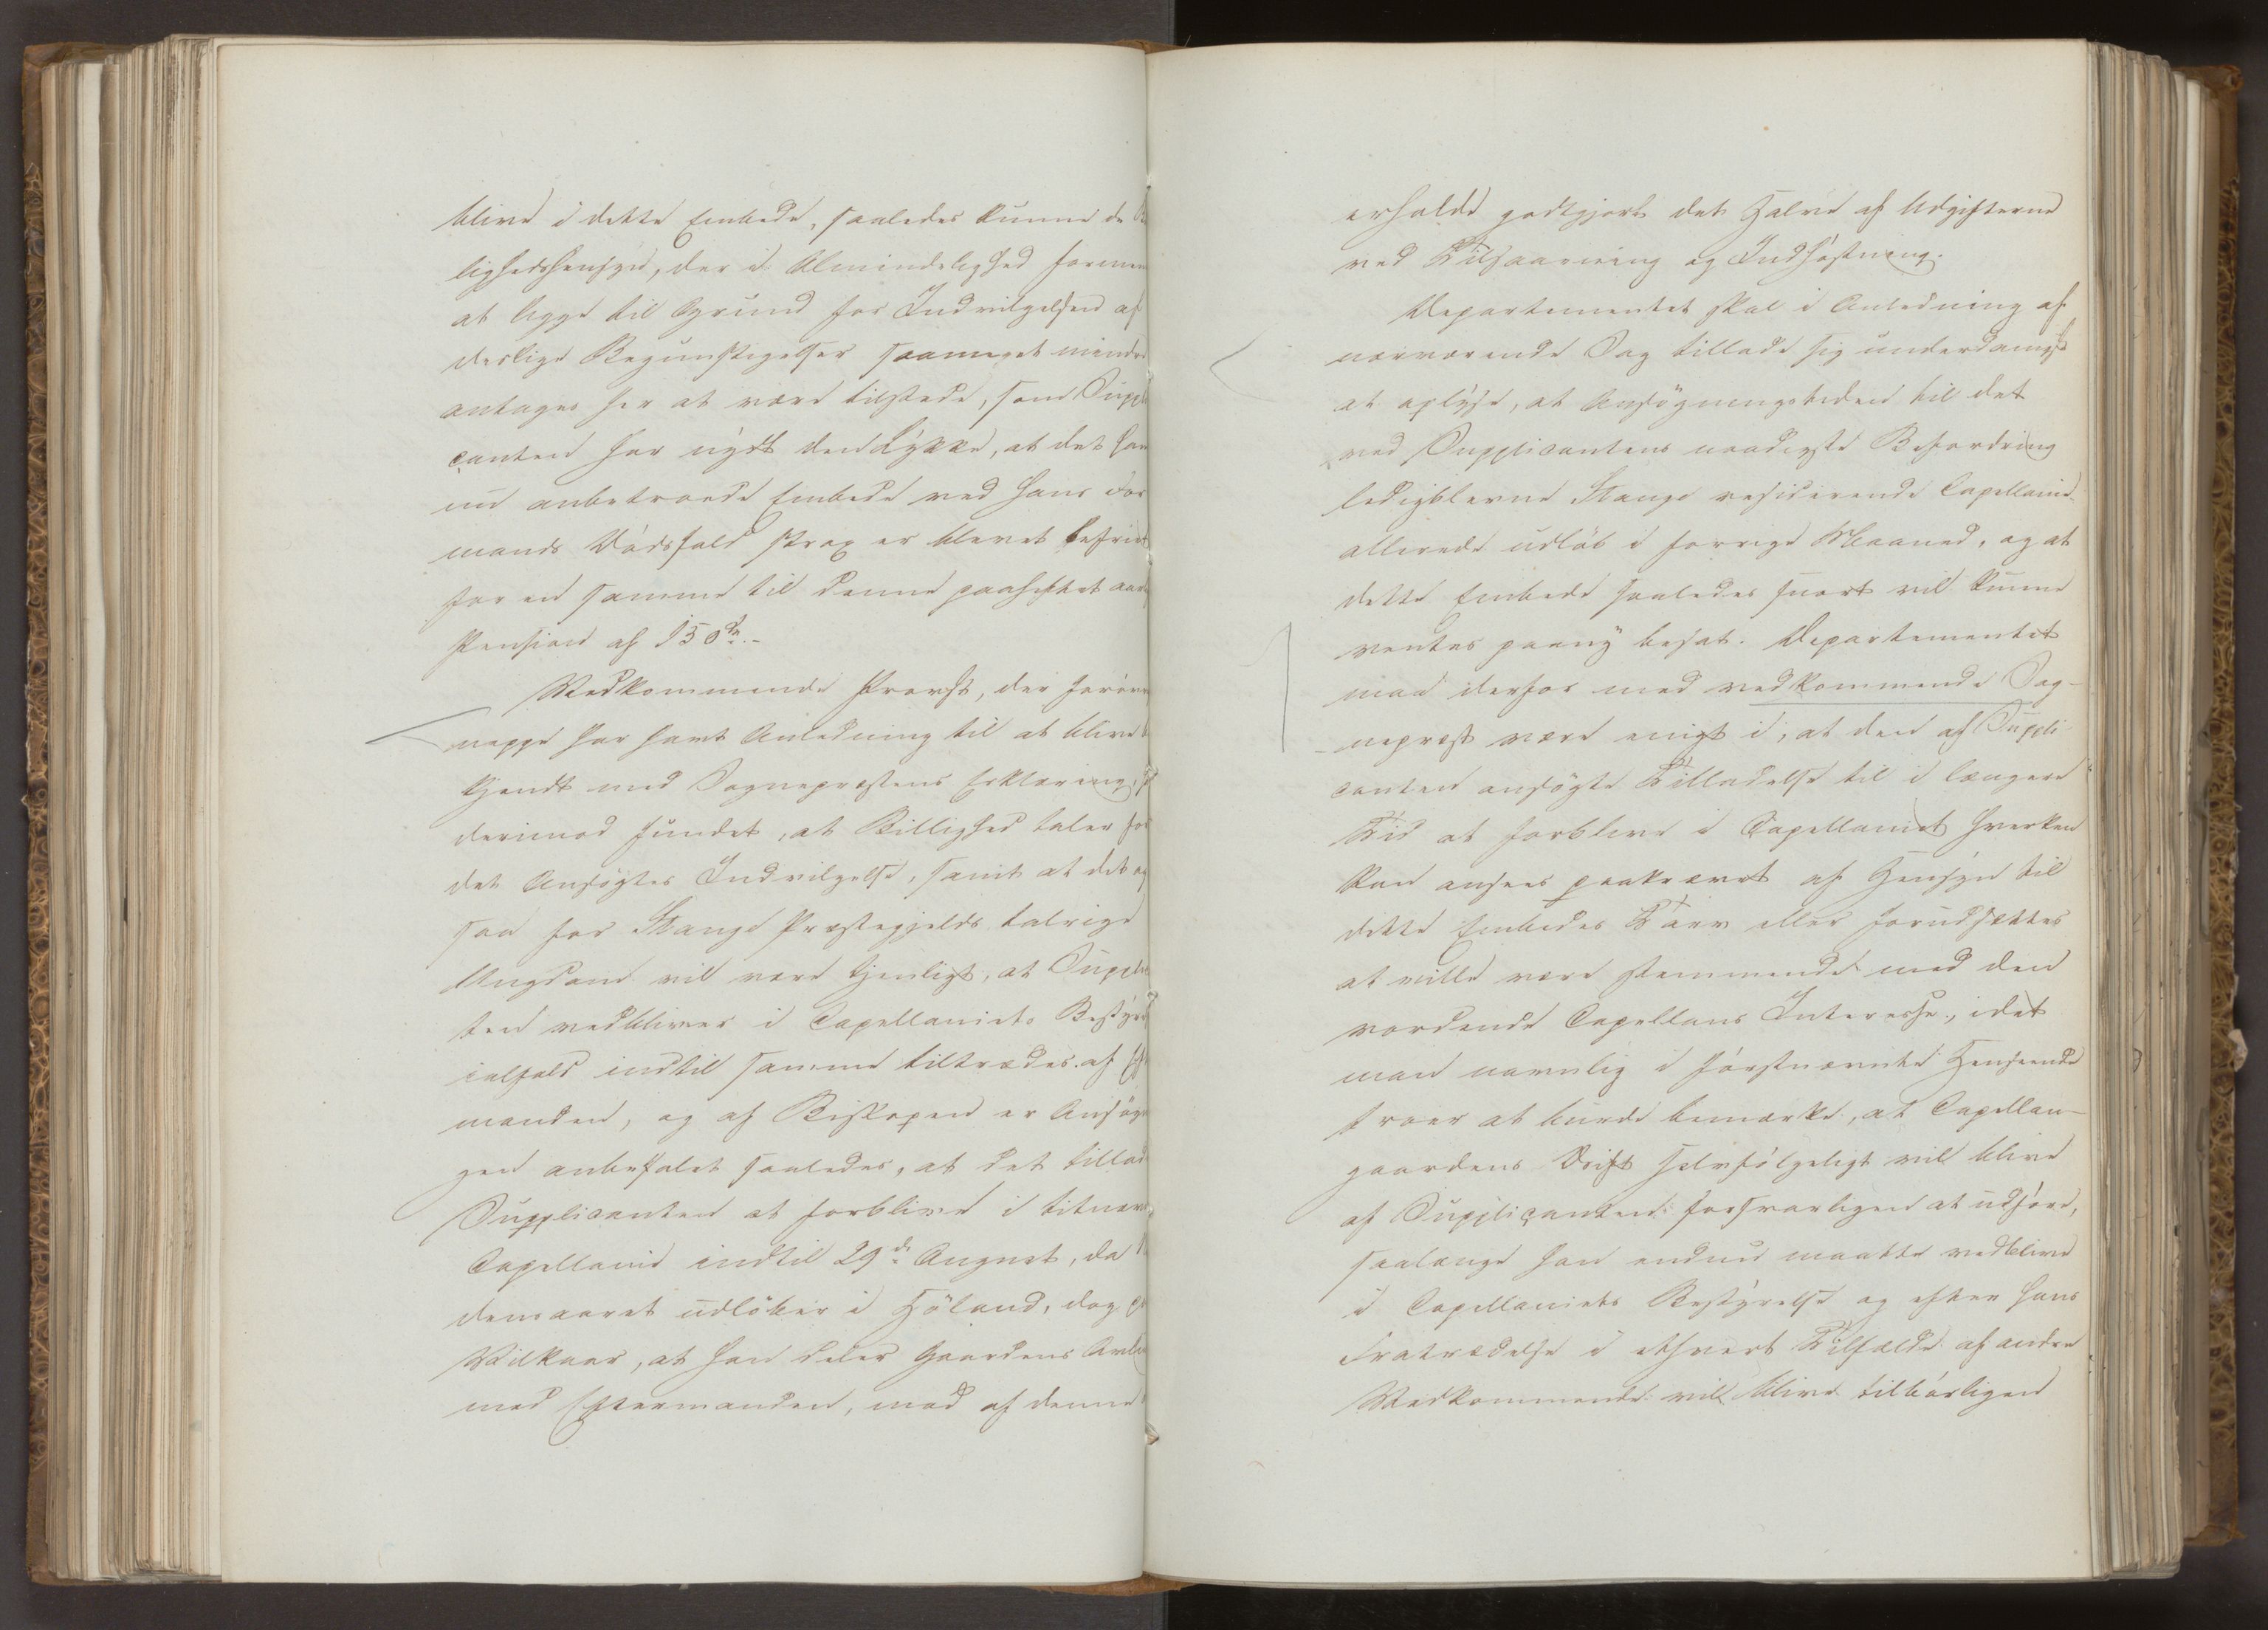 blive i dette Embede, saaledes kunne de Bil
lighedshensyn, der i Almindelighed formene
at ligge til Grund for Indvilgelsen af
deslige Begunstigelser saameget mindre
antages her at være tilstede, som Suppli
canten har nydt den Lykke, at det ham
nu anbetroede Embede ved hans For
mands Dødsfald strax er blevet befriet
for en samme til denne paaheftet aarlig
Pension af 150 Spd.
Vedkommende Provst, der forøvrigt
neppe har havt Anledning til at blive be
kjendt med Sognepræstens Erklæring,
derimod fundet, at Billighed taler for
det Ansøgtes Indvilgelse, samt at det og
saa for Stange Præstegjelds talrige
Ungdom vil være tjenligt, at Supplican
ten vedbliver i Capellaniets Bestyrelse
ialfald indtil samme tiltrædes af Efter
manden, og af Biskopen er Ansøgnin
gen anbefalet saaledes, at det tillades
Supplicanten at forblive i bitnævnte
Capellanie indtil 29de August, da
demaaret udløber i Høland, dog paa
Vilkaar, at han deler Gaardens Avling
med Eftermanden, mod af denne
erholde godtgjort det Halve af Udgifterne
ved Tilsaaening og Indhøstning.
Departementet skal i Anledning af
nærværende Sag tillade sig underdanigst
at oplyse, at Ansøgningstiden til det
ved Supplicantens naadigste Befordring
ledigblevne Stange residerende Capellanie
allerede udløb i forrige Maaned, og at
dette Embede saaledes snart vil kunne
ventes paany besat. Departementet
maa derfor med vedkommende Sog-
nepræst være enigt i, at den af Suppli
canten ansøgte Tilladelse til i længere
Tid at forblive i Capellaniet hverken
kan ansees paakrævet af Hensyn til
dette Embedes Tarv eller forudsættes
at ville være stemmende med den
vordende Capellans Interesse, idet
man navnlig i førstnævnte Henseende
troer at burde bemærke, at Capellan-
gaardens Drift selvfølgeligt vil blive
af Supplicanten forsvarligen at udføre,
saalænge han endnu maatte vedblive
i Capellaniets Bestyrelse og efter hans
Fratrædelse i ethvert Tilfælde af andre
Vedkommende vil blive tilbørligen